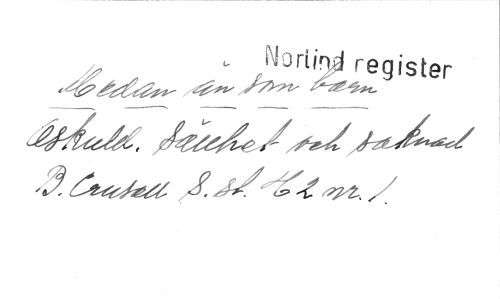 Norlind register
Medan än som barn
Oskuld. Sällhet och saknad
B. Crusell S. st. H 2 nr. 1.